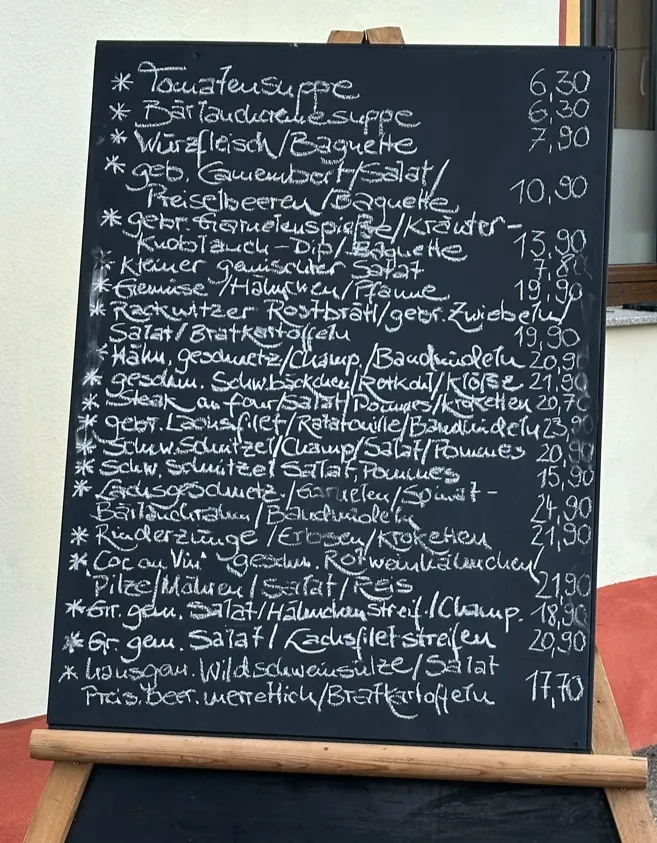 * Tomatensuppe 6,30
* Bärlauchcremesuppe 6,30
* Würzfleisch/Baguette 7,90
* geb. Camembert/Salat/
Preiselbeeren/Baguette 10,90
* gebr. Garnelenspieße/Kräuter-
Knoblauch-Dip/Baguette 13,90
* Kleiner gemischter Salat 7,8
* Gemüse/Hähnchen/Pfanne 19,90
* Rackwitzer Rostbrätl/gebr. Zwiebeln/
Salat/Bratkartoffeln 19,90
* Hähn. geschnetz/Champ./Bandnudeln 20,90
* geschm. Schw.bäckchen/Rotkohl/Klöße 21,90
* Steak au four/Salat/Pommes/Kroketten 20,70
* gebr. Lachsfilet/Ratatouille/Bandnudeln 23,90
* Schw.Schnitzel/Champ/Salat/Pommes 20,90
* Schw. Schnitzel Salat, Pommes 15,90
* Lachsgeschnetz./Garnelen/Spinat-
Bärlauchrahm/Bandnudeln 24,90
* Rinderzunge/Erbsen/Kroketten 21,90
* "Coc au Vin" geschm. Rotweinhähnchen/
Pilze/Möhren/Salat/Reis 21,90
* Gr. gem. Salat/Hähnchenstreif./Champ. 18,90
* Gr. gem. Salat/Lachsfiletstreifen 20,90
* hausgem. Wildschweinsülze/Salat
Preis.beer. merrettich/Bratkartoffeln 17,70